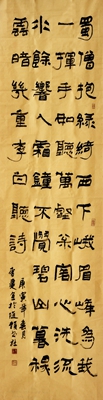 蜀僧抱綠綺西下峨眉峰為我
一揮手如聽萬壑松客心洗流
水餘響入霜鐘不覺碧山暮秋
雲暗幾重李白聽詩
庚寅年